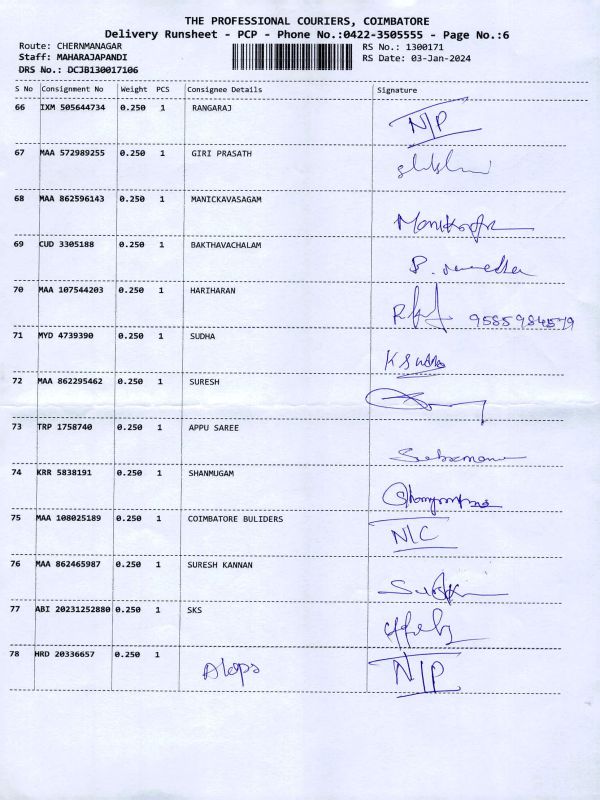 THE PROFESSIONAL COURIERS, COIMBATORE
Delivery Runsheet - PCP - Phone No.:0422-3505555 - Page No.:6
Route: CHERNMANAGAR RS No.: 1300171
Staff: MAHARAJAPANDI RS Date: 03-Jan-2024
DRS No.: DCJB130017106
S No Consignment No Weight PCS Consignee Details Signature
66 IXM 505644734 0.250 1 RANGARAJ N/P
67 MAA 572989255 0.250 1 GIRI PRASATH
68 MAA 862596143 0.250 1 MANICKAVASAGAM
69 CUD 3305188 0.250 1 BAKTHAVACHALAM
70 MAA 107544203 0.250 1 HARIHARAN
71 MYD 4739390 0.250 1 SUDHA K Sudha
72 MAA 862295462 0.250 1 SURESH
73 TRP 1758740 0.250 1 APPU SAREE
74 KRR 5838191 0.250 1 SHANMUGAM
75 MAA 108025189 0.250 1 COIMBATORE BULIDERS N/C
76 MAA 862465987 0.250 1 SURESH KANNAN
77 ABI 20231252880 0.250 1 SKS
78 HRD 20336657 0.250 1 N/P